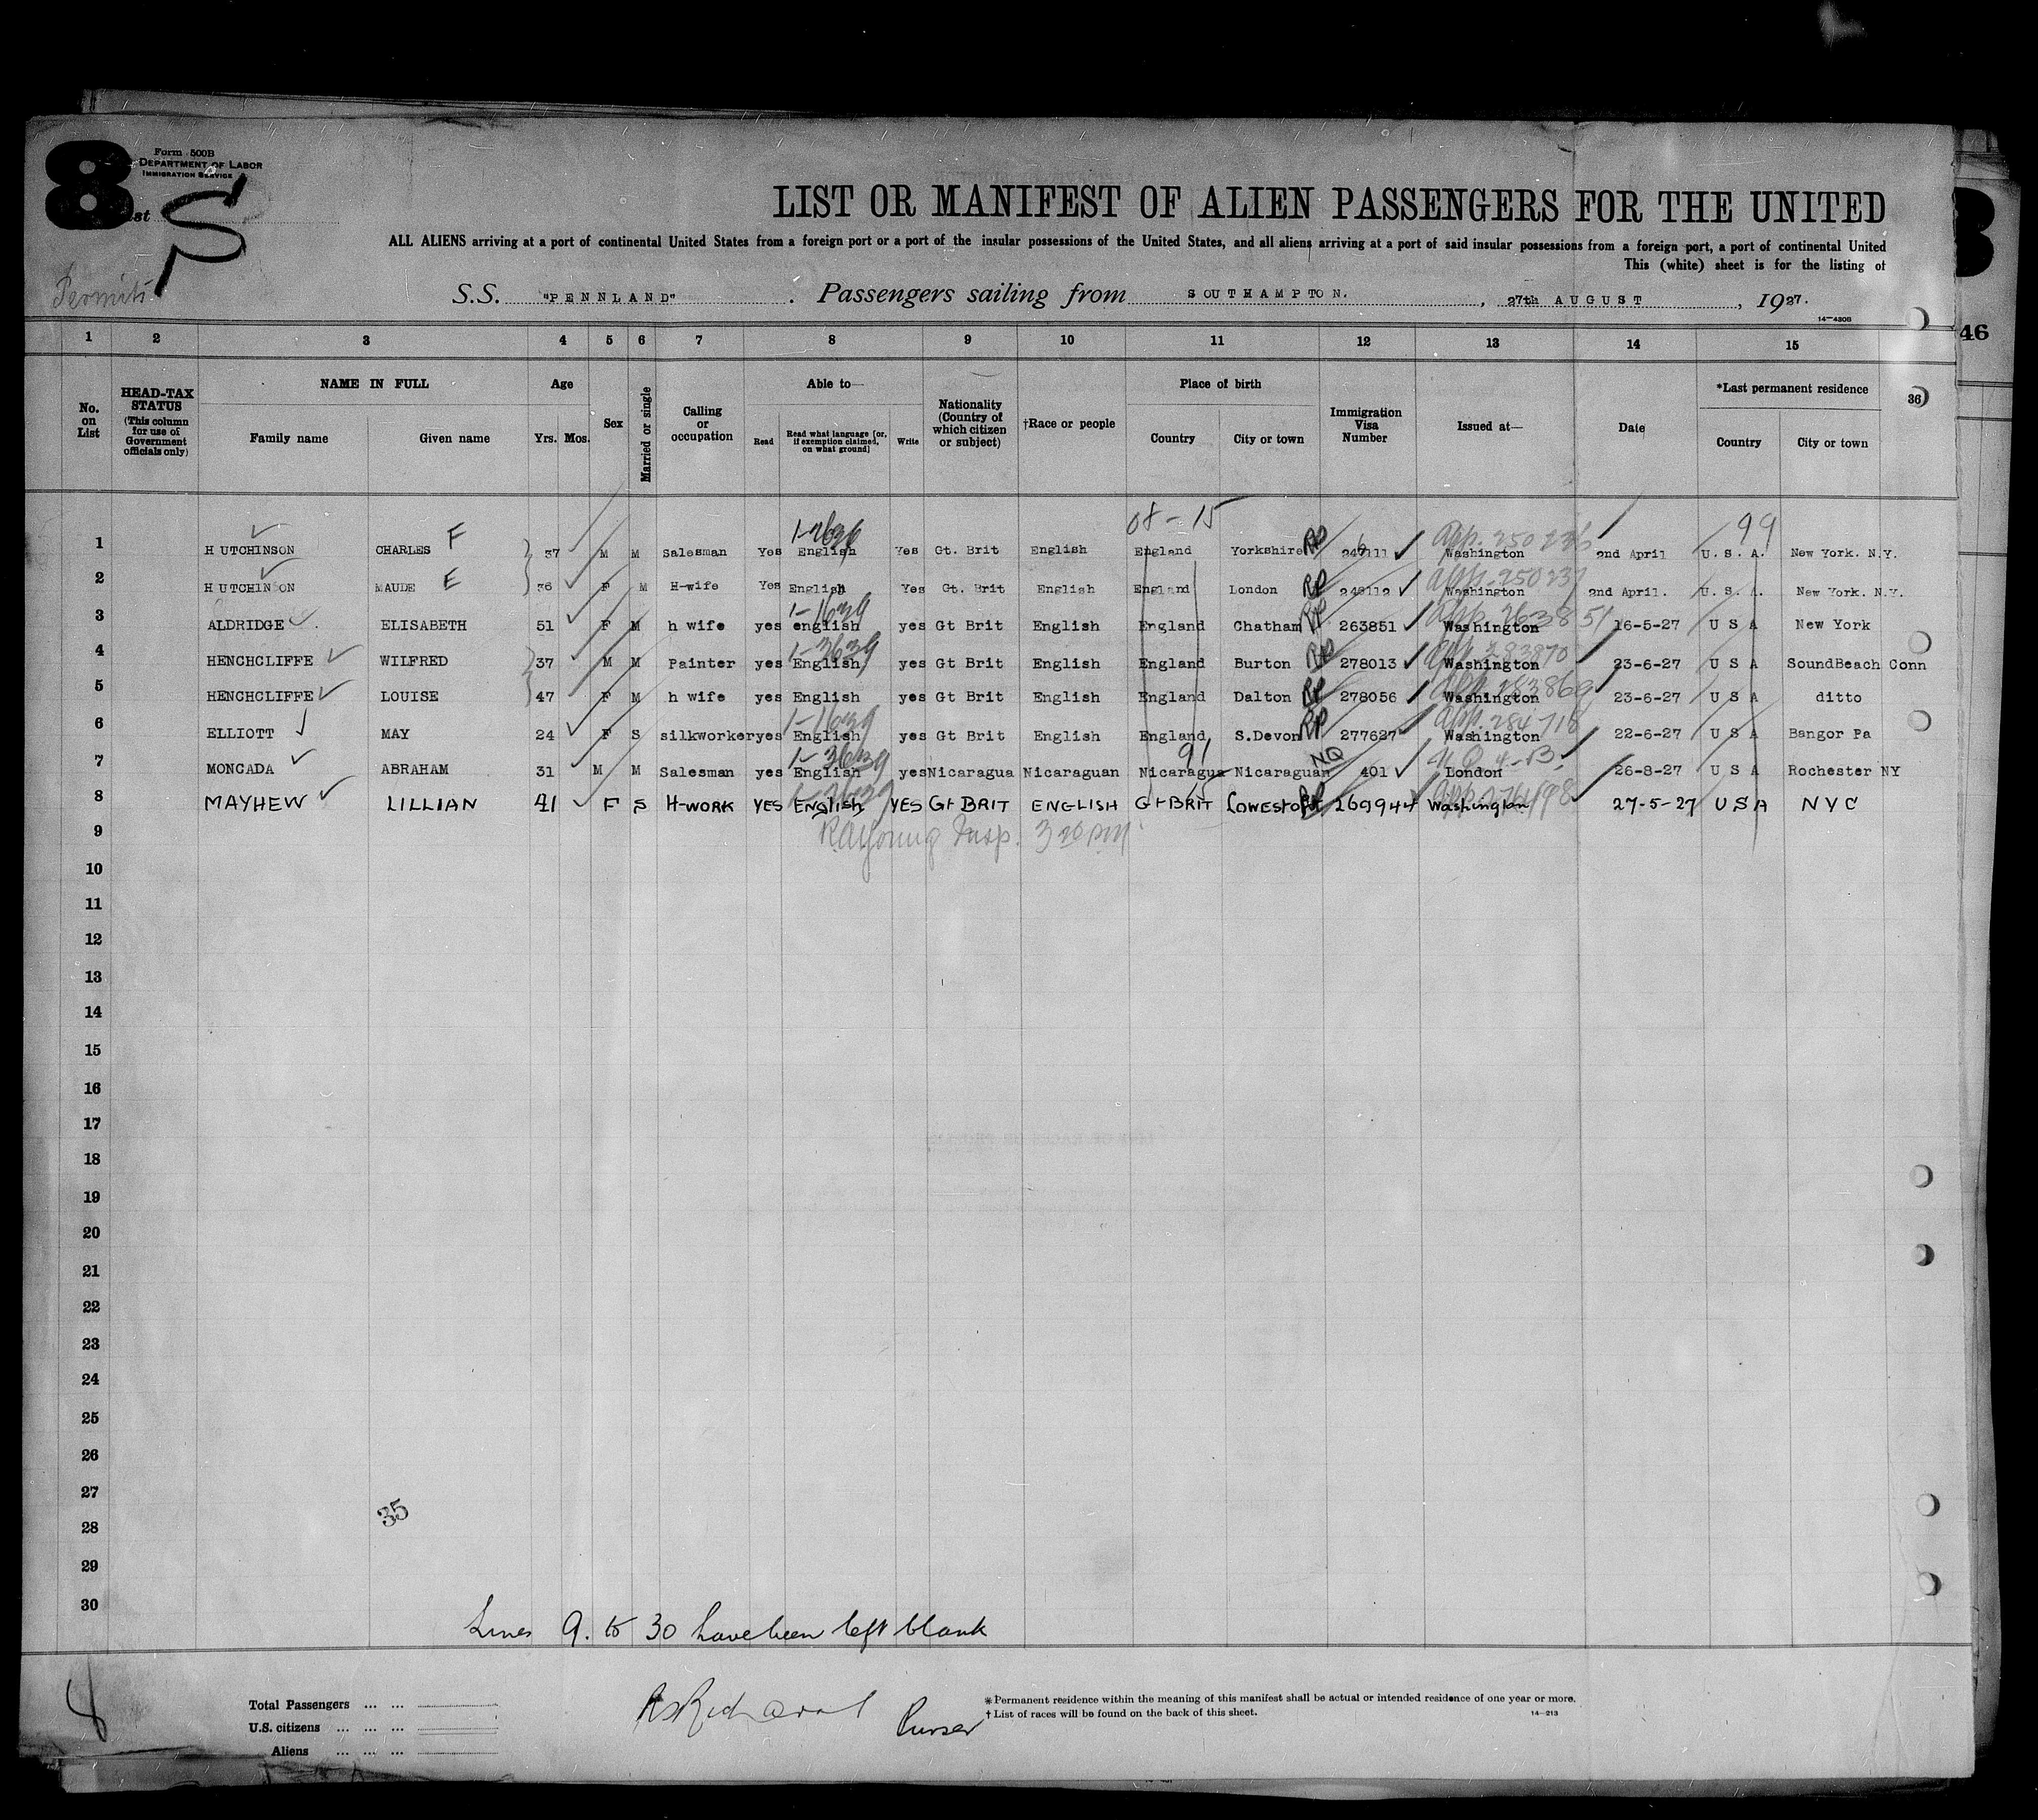 8
Form 500B
DEPARTMENT OF LABOR
IMMIGRATION SERVICE
S
Permits
LIST OR MANIFEST OF ALIEN PASSENGERS FOR THE UNITED
ALL ALIENS arriving at a port of continental United States from a foreign port or a port of the insular possessions of the United States, and all aliens arriving at a port of said insular possessions from a foreign port, a port of continental United
This (white) sheet is for the listing of
S.S. "PENNLAND". Passengers sailing from SOUTHAMPTON., 27th AUGUST, 1927.
14—430B
46
1 2 3 4 5 6 7 8 9 10 11 12 13 14 15
No. on List
HEAD-TAX STATUS (This column for use of Government officials only)
NAME IN FULL Family name Given name
Age Yrs. Mos.
Sex
Married or single
Calling or occupation
Able to— Read Read what language [or, if exemption claimed, on what ground] Write
Nationality (Country of which citizen or subject)
†Race or people
Place of birth Country City or town
Immigration Visa Number
Issued at—
Date
*Last permanent residence Country City or town
36
08-15 99
1 HUTCHINSON CHARLES F 37 M M Salesman Yes English Yes Gt. Brit English England Yorkshire RP Washington app. 2nd April U.S.A. New York. N.Y.
2 HUTCHINSON MAUDE E 36 F M H-wife Yes English Yes Gt. Brit English England London RP Washington app. 250237 2nd April. U.S.A. New York. N.Y.
3 ALDRIDGE ELISABETH 51 F M h wife yes english 1-1639 yes Gt Brit English England Chatham RP 263851 Washington app. 263851 16-5-27 U S A New York
4 HENCHCLIFFE WILFRED 37 M M Painter yes English 1-3639 yes Gt Brit English England Burton RP 278013 Washington app. 283870 23-6-27 U S A SoundBeach Conn
5 HENCHCLIFFE LOUISE 47 F M h wife yes English yes Gt Brit English England Dalton RP 278056 Washington app. 283869 23-6-27 U S A ditto
6 ELLIOTT MAY 24 F S silkworker yes English 1-1639 yes Gt Brit English England S.Devon RP 277627 Washington app. 284718 22-6-27 U S A Bangor Pa
7 MONCADA ABRAHAM 31 M M Salesman yes English 1-3639 yes Nicaragua Nicaraguan Nicaragua 91 Nicaraguan NQ 401 London 26-8-27 U S A Rochester NY
8 MAYHEW LILLIAN 41 F S H-WORK YES English YES Gt BRIT ENGLISH Gt BRIT LOWESTOFT RP 269944 Washington 27-5-27 USA NYC
9 Insp. 3 20 pm
10
11
12
13
14
15
16
17
18
19
20
21
22
23
24
25
26
27
28 35
29
30
Lines 9. to 30 have been left blank
Purser
Total Passengers ... ...
U.S. citizens ... ... ...
Aliens ... ... ...
* Permanent residence within the meaning of this manifest shall be actual or intended residence of one year or more.
† List of races will be found on the back of this sheet.
14—213